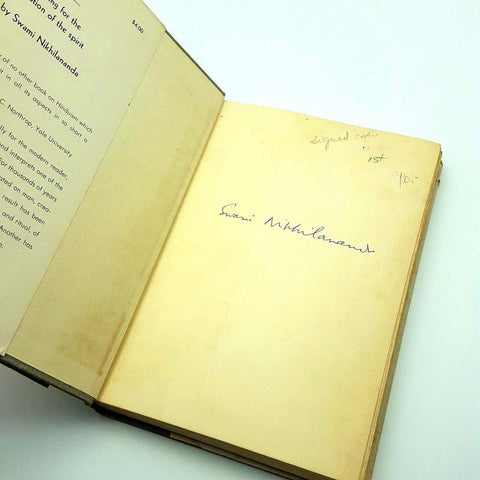 ing for the
ation of the spirit
by Swami Nikhilananda
$4.00
of no other book on Hinduism which
it in all its aspects in so short a
C. Northrop, Yale University
lly for the modern reader,
and interprets one of the
For thousands of years
ated on man, crea-
result has been
and ritual, of
Another has
a.
Signed copy
1st
10-
Swami Nikhilananda